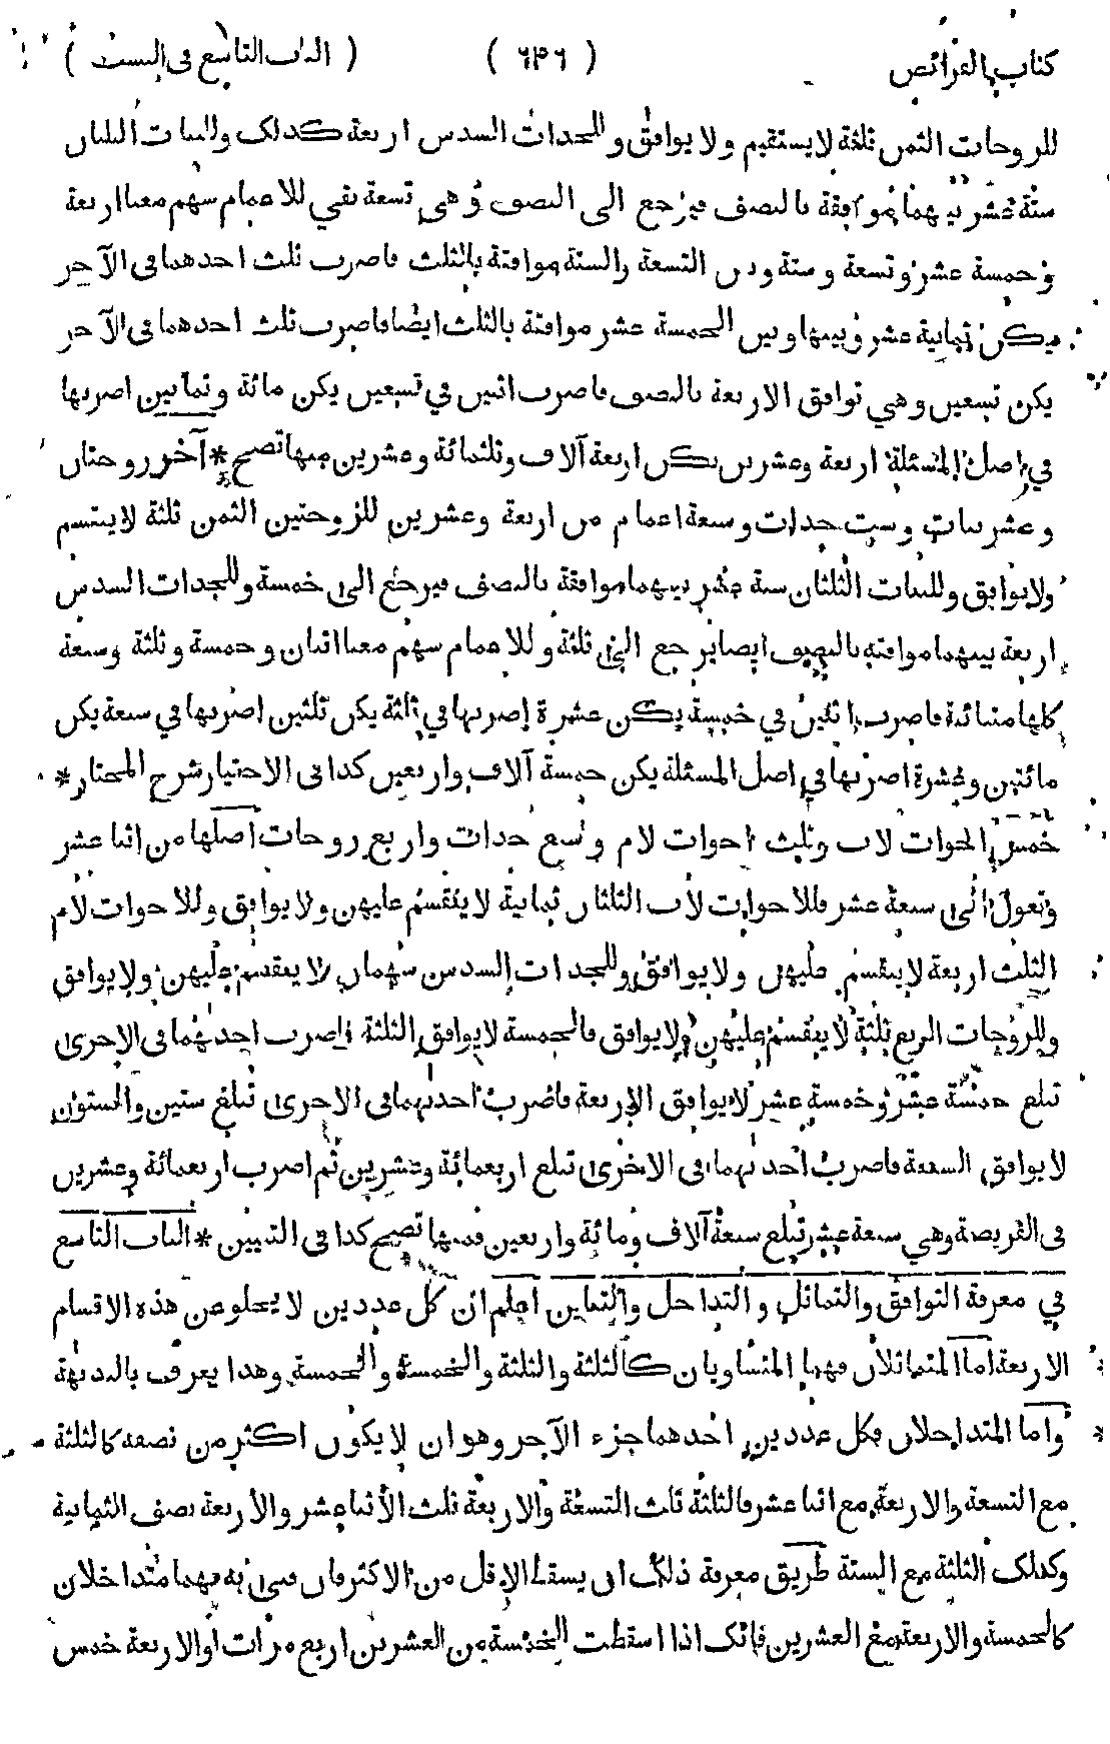 كتاب الفرائض ( ٦٣٦ ) ( الباب التاسع فى النسب )
للزوجات الثمن ثلثة لا يستقيم ولا يوافق وللجدات السدس اربعة كذلك وللبنات الثلثان
ستة عشر بينهما موافقة بالنصف فيرجع الى النصف وهى تسعة بقي للاعمام سهم معنا اربعة
وخمسة عشر وتسعة وستة وبين التسعة والستة موافقة بالثلث فاضرب ثلث احدهما فى الآخر
يكن ثمانية عشر وبينها وبين الخمسة عشر موافقة بالثلث ايضا فاضرب ثلث احدهما فى الآخر
يكن تسعين وهي توافق الاربعة بالنصف فاضرب اثنين في تسعين يكن مائة وثمانين اضربها
في اصل المسئلة اربعة وعشرين يكن اربعة آلاف وثلثمائة وعشرين منها تصح * آخر زوجتان
وعشر بنات وست جدات وسبعة اعمام من اربعة وعشرين للزوجتين الثمن ثلثة لا ينقسم
ولا يوافق وللبنات الثلثان ستة عشر بينهما موافقة بالنصف فيرجع الى خمسة وللجدات السدس
اربعة بينهما موافقة بالنصف ايضا يرجع الى ثلثة وللاعمام سهم معنا اثنان وخمسة وثلثة وسبعة
كلها متبائنة فاضرب اثنين في خمسة يكن عشرة اضربها في ثلثة يكن ثلثين اضربها في سبعة يكن
مائتين وعشرة اضربها في اصل المسئلة يكن خمسة آلاف واربعين كذا فى الاختيار شرح المختار *
خمس اخوات لاب وثلث اخوات لام وسبع جدات واربع زوجات اصلها من اثنا عشر
وتعول الى سبعة عشر فللاخوات لاب الثلثان ثمانية لا ينقسم عليهن ولا يوافق وللاخوات لام
الثلث اربعة لا ينقسم عليهن ولا يوافق وللجدات السدس سهمان لا ينقسم عليهن ولا يوافق
وللزوجات الربع ثلثة لا ينقسم عليهن ولا يوافق فالخمسة لا يوافق الثلثة فاضرب احدهما فى الاخرى
تبلغ خمسة عشر وخمسة عشر لا يوافق الاربعة فاضرب احدهما فى الاخرى تبلغ ستين والستون
لا يوافق السبعة فاضرب احدهما فى الاخرى تبلغ اربعمائة وعشرين ثم اضرب اربعمائة وعشرين
فى الفريضة وهي سبعة عشر تبلغ سبعة آلاف ومائة واربعين فمنها تصح كذا فى التبيين * الباب التاسع
في معرفة التوافق والتماثل والتداخل والتباين اعلم ان كل عددين لا يخلو عن هذه الاقسام
الاربعة اما المتماثلان فهما المتساويان كالثلثة والثلثة والخمسة والخمسة وهذا يعرف بالبديهة
واما المتداخلان فكل عددين احدهما جزء الآخر وهو ان لا يكون اكثر من نصفه كالثلثة
مع التسعة والاربعة مع اثنا عشر فالثلثة ثلث التسعة والاربعة ثلث الأثنا عشر والأربعة نصف الثمانية
وكذلك الثلثة مع الستة طريق معرفة ذلك ان يسقط الاقل من الاكثر فان فنى به فهما متداخلان
كالخمسة والاربعة مع العشرين فانك اذا اسقطت الخمسة من العشرين اربع مرات او الاربعة خمس